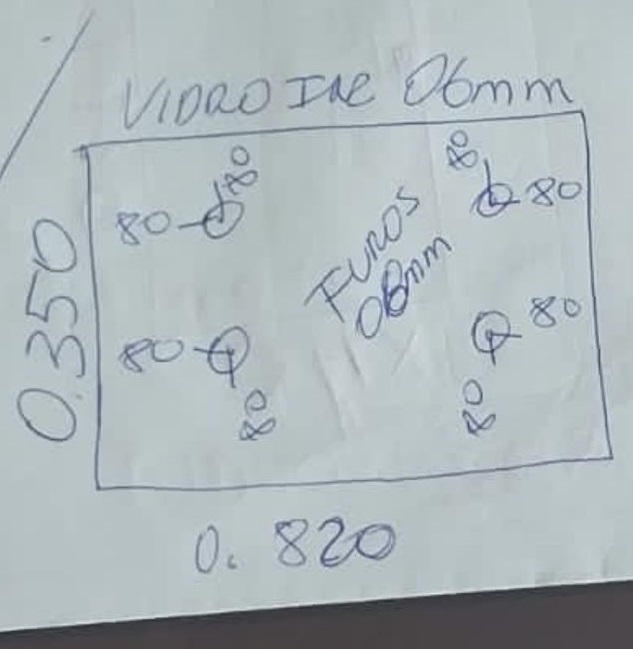 VIDRO INC 06mm
80 80
80 80
FUROS
08mm
0.350
80 80
80 80
0.820